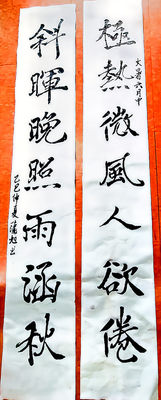 大暑六月中
極熱微風人欲倦
斜暉晚照雨涵秋
乙巳仲夏